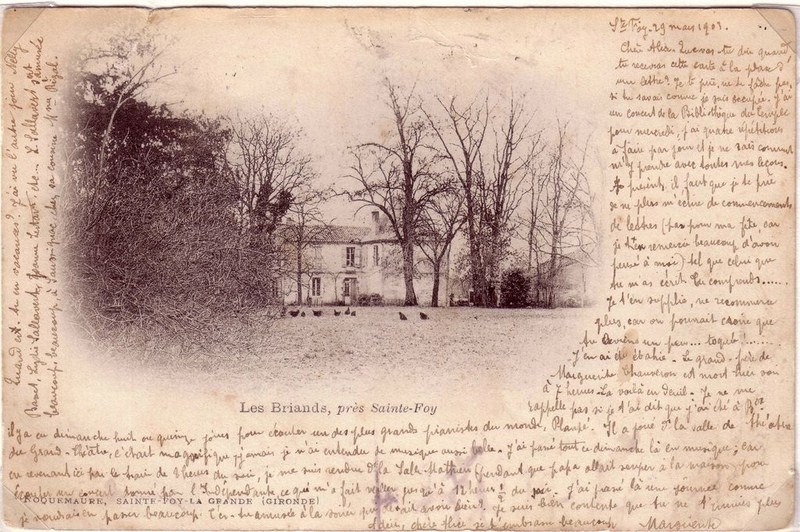 Ste Foy. 29 mars 1903.
Chère Alice. Qu'en vas-tu dire quand
tu recevras cette carte à la place d'
une lettre? Je t'en prie, ne te fâche pas,
si tu savais comme je suis occupée. J'ai
un concert de la Bibliothèque du Temple
pour mercredi, j'ai quatre répétitions
à faire par jour et je ne sais comment
m'y prendre avec toutes mes leçons.
à présent, il faut que je te prie
de ne plus m'écrire de commencements
de lettres (pas pour ma fête, car
je t'en remercie beaucoup d'avoir
pensé à moi) tel que celui que
tu m'as écrit. Tu comprends......
Je t'en supplie, ne recommence
plus, car on pourrait croire que
tu deviens un peu... toquée!......
J'en ai été ébahie. Le grand-père de
Marguerite Chauveron est mort hier soir
à 7 heures. La voilà en deuil. Je ne me
rappelle pas si je t'ai dit que j'ai été à Bdx
il y a eu dimanche huit ou quinze jours pour écouter un des plus grands pianistes du monde, Planté. Il a joué à la salle de théâtre
du Grand-Théâtre, c'était magnifique, jamais je n'ai entendu de musique aussi belle. J'ai passé tout ce dimanche là en musique; car
en revenant ici par le train de 8 heures du soir, je me suis rendue à la Salle Mathieu pendant que papa allait souper à la maison, pour
écouter un concert donné par l'Indépendante ce qui m'a fait veiller jusqu'à 12 heures du soir. J'ai passé là une journée comme
je voudrais en passer beaucoup. T'es-tu amusée à la soirée
Je suis bien contente que tu ne t'ennuies plus
chère Alice je t'embrasse beaucoup Marguerite
Quand est-tu en vacances? J'ai vu l'autre jour Nelly
beaucoup
Les Briands, près Sainte-Foy
ROQUEMAURE, SAINTE-FOY-LA GRANDE (GIRONDE)